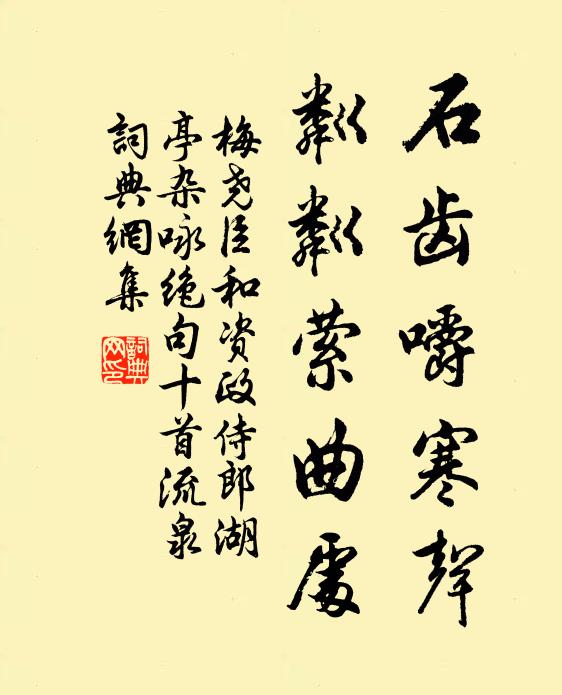 石齿嚼寒聲
粼粼萦曲處
梅尧臣和资政侍郎湖
亭杂咏绝句十首流泉
詞典網集
詞典网印